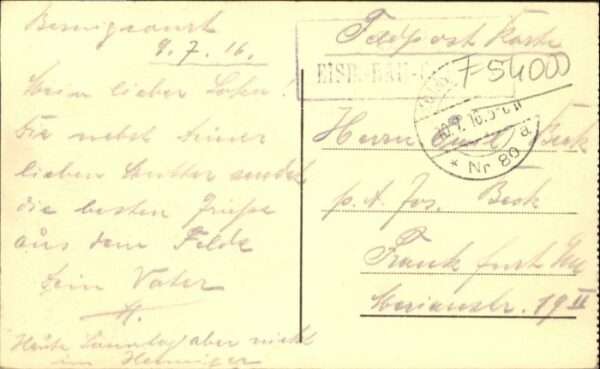 9. 7. 16.
Mein lieber Sohn!
Dir nebst deiner
lieben Mutter sendet
die besten Grüße
aus dem Felde
Dein Vater
H.
Heute Sonntag aber nicht
im
Feldpost Karte
EISB.-BAU-
F 54000
10.7.16.
* Nr 89 a
Herrn Beck
p. A. Jos. Beck
Frankfurt
Merianstr. 19 II